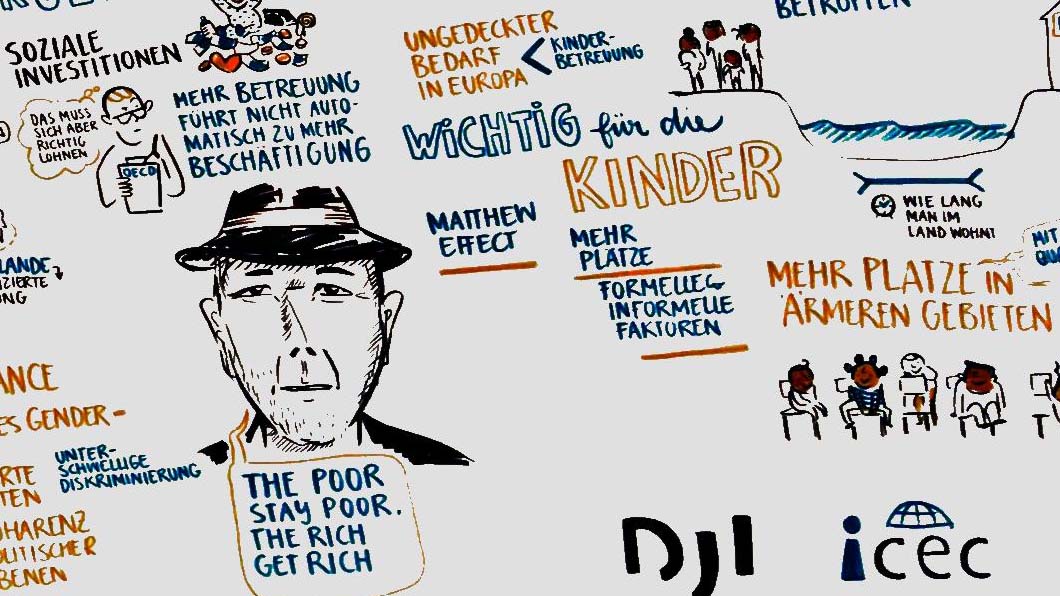 SOZIALE
INVESTITIONEN
DAS MUSS
SICH ABER
RICHTIG
LOHNEN
OECD
MEHR BETREUUNG
FÜHRT NICHT AUTO-
MATISCH ZU MEHR
BESCHÄFTIGUNG
UNGEDECKTER
BEDARF
IN EUROPA
KINDER-
BETREUUNG
WICHTIG für die
KINDER
MATTHEW
EFFECT
MEHR
PLÄTZE
FORMELLE
INFORMELLE
FAKTOREN
WIE LANG
MAN IM
LAND WOHNT
MIT
MEHR PLÄTZE IN
ÄRMEREN GEBIETEN
LANDE
UNG
ANCE
ES GENDER-
UNTER-
SCHWELLIGE
DISKRIMINIERUNG
RTE
TEN
OHARENZ
OLITISCHER
BENEN
THE POOR
STAY POOR.
THE RICH
GET RICH
DJI
icec